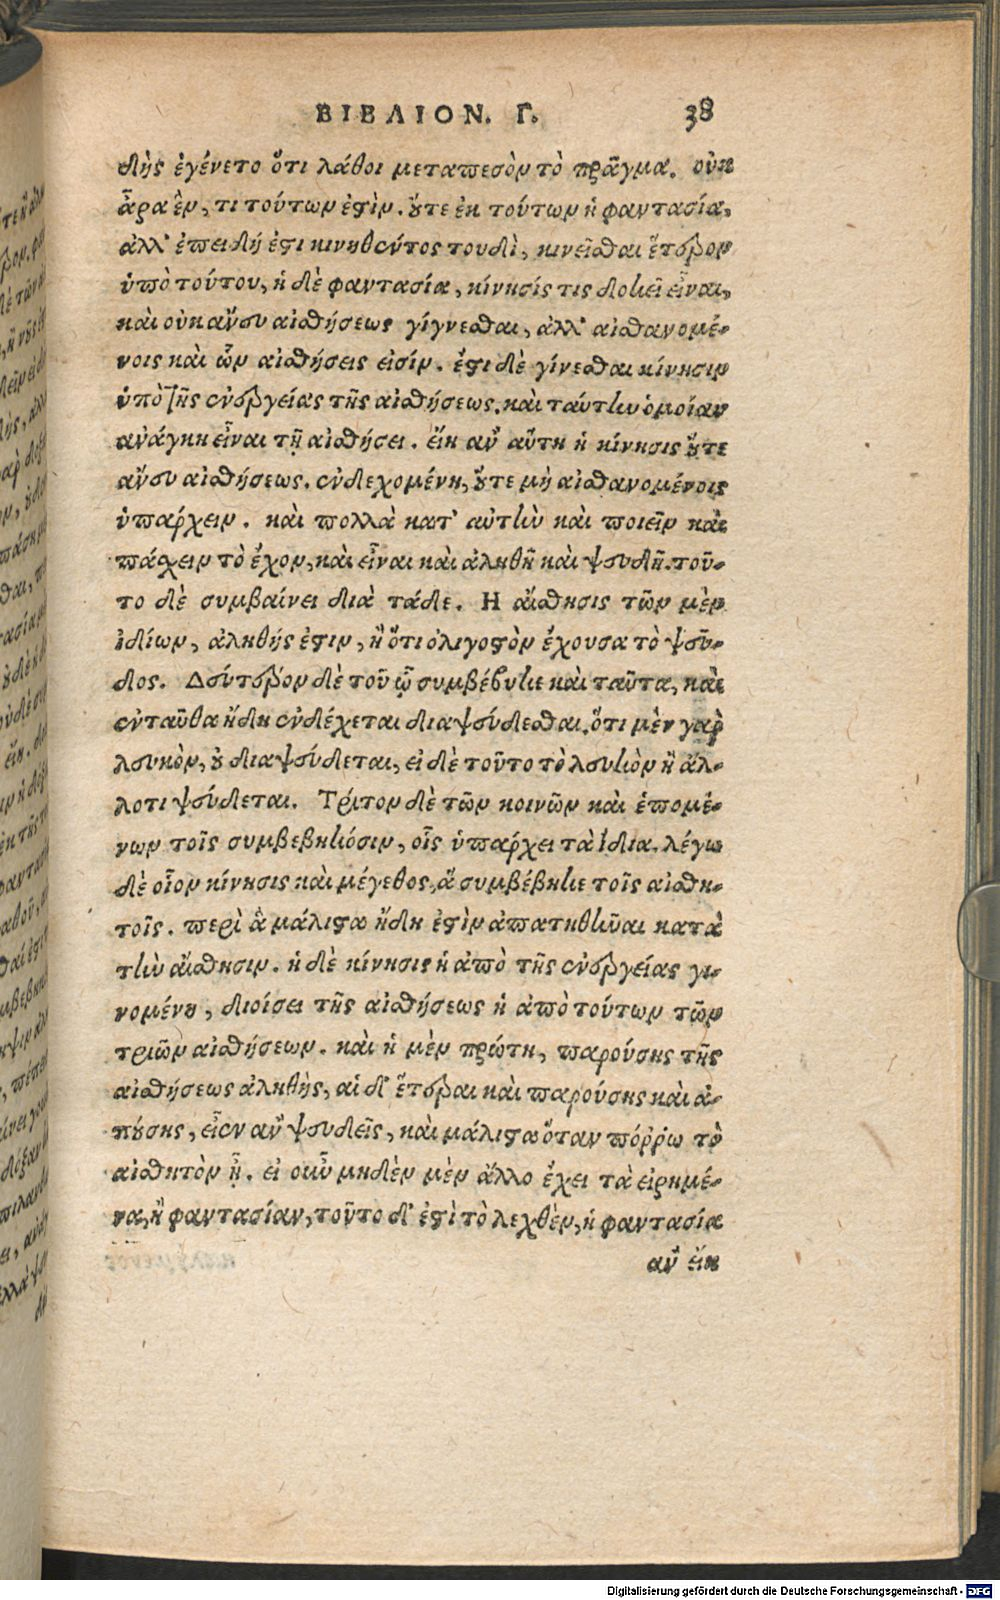 ΒΙΒΛΙΟΝ. Γ. 38
δὴς ἐγένετο ὅτι λάθοι μεταπεσὸν τὸ πρᾶγμα. οὐκ
ἄρα ἓν, τι τούτων ἐστὶν. ὄυτε ἐκ τούτων ἡ φαντασία,
ἀλλ' ἐπειδή ἐστι κινηθέντος τουδὶ, κινεῖσθαι ἕτερον
ὑπὸ τούτου, ἡ δὲ φαντασία, κίνησίς τις δοκεῖ εἶναι,
καὶ οὐκ ἄνευ αἰσθήσεως γίγνεσθαι, ἀλλ' αἰσθανομέ-
νοις καὶ ὧν αἰσθήσεις εἰσίν. ἔστι δὲ γίνεσθαι κίνησιν
ὑπὸ τῆς ἐνεργείας τῆς αἰσθήσεως, καὶ ταύτην ὁμοίαν
ἀνάγκη εἶναι τῇ αἰσθήσει. εἴη ἂν αὕτη ἡ κίνησις ὄυτε
ἄνευ αἰσθήσεως. ἐνδεχομένη, ὄυτε μὴ αἰσθανομένοις
ὑπάρχειν. καὶ πολλὰ κατ' αὐτὴν καὶ ποιεῖν καὶ
πάσχειν τὸ ἔχον, καὶ εἶναι καὶ ἀληθῆ καὶ ψευδῆ. τοῦ-
το δὲ συμβαίνει διὰ τάδε. Η αἴσθησις τῶν μὲν
ἰδίων, ἀληθής ἐστιν, ἢ ὅτι ὀλιγοστὸν ἔχουσα τὸ ψεῦ-
δος. Δεύτερον δὲ τοῦ ᾧ συμβέβηκε καὶ ταῦτα, καὶ
ἐνταῦθα ἤδη ἐνδέχεται διαψεύδεσθαι. ὅτι μὲν γαρ
λευκὸν, ὀυ διαψεύδεται, εἰ δὲ τοῦτο τὸ λευκὸν ἢ ἄλ-
λο τι ψεύδεται. Τρίτον δὲ τῶν κοινῶν καὶ ἑπομέ-
νων τοῖς συμβεβηκόσιν, οἷς ὑπάρχει τὰ ἴδια. λέγω
δὲ οἷον κίνησις καὶ μέγεθος, ἃ συμβέβηκε τοῖς αἰσθη-
τοῖς. περὶ ἃ μάλιστα ἤδη ἐστὶν ἀπατηθῆναι κατὰ
τὴν αἴσθησιν. ἡ δὲ κίνησις ἡ ἀπὸ τῆς ἐνεργείας γι-
νομένη, διοίσει τῆς αἰσθήσεως ἡ ἀπὸ τούτων τῶν
τριῶν αἰσθήσεων. καὶ ἡ μὲν πρώτη, παρούσης τῆς
αἰσθήσεως ἀληθὴς, αἱ δ' ἕτεραι καὶ παρούσης καὶ ἀ-
πούσης, εἶεν ἂν ψευδεῖς, καὶ μάλιστα ὅταν πόῤῥω τὸ
αἰσθητὸν ᾖ. εἰ οὖν μηδὲν μὲν ἄλλο ἔχει τὰ εἰρημέ-
να, ἢ φαντασίαν, τοῦτο δ' ἐστὶ τὸ λεχθὲν, ἡ φαντασία
ἂν εἴη
Digitalisierung gefördert durch die Deutsche Forschungsgemeinschaft - DFG